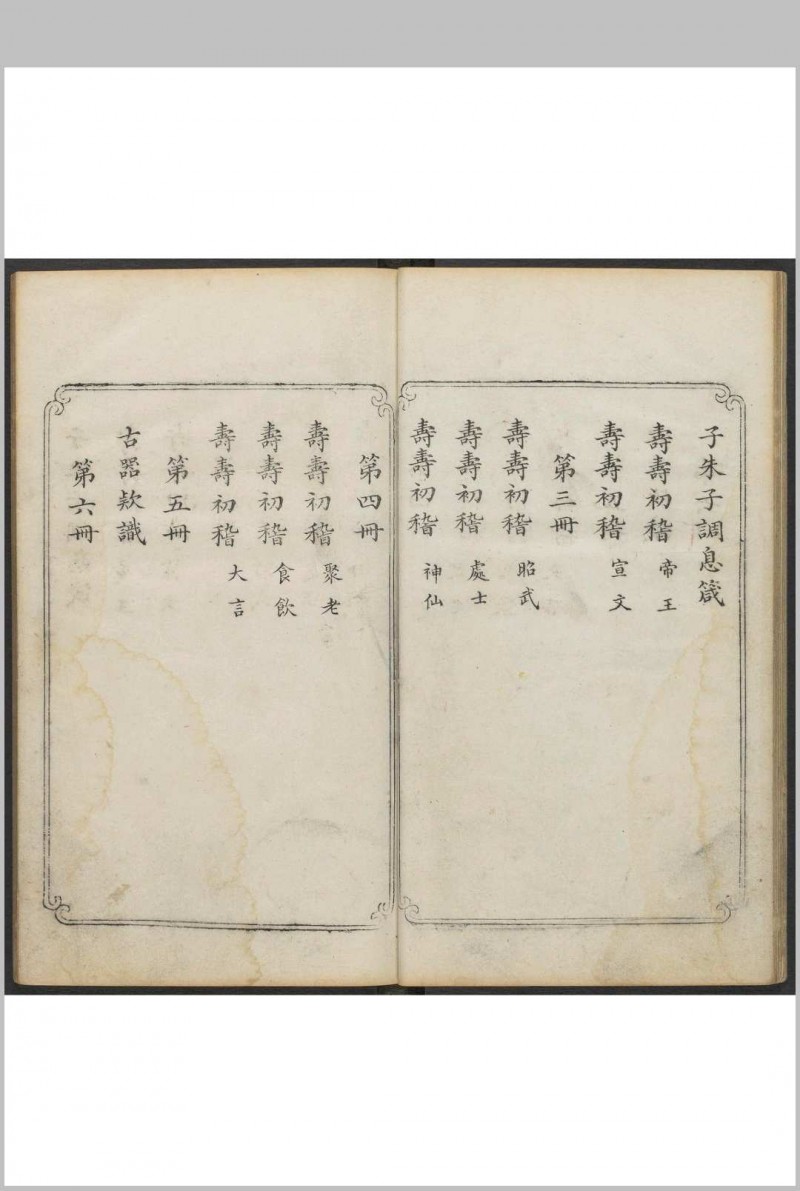 子朱子調息箴
壽壽初稽 帝王
壽壽初稽 宣文
第三冊
壽壽初稽 昭武
壽壽初稽 處士
壽壽初稽 神仙
第四冊
壽壽初稽 聚老
壽壽初稽 食飲
壽壽初稽 大言
第五冊
古器欵識
第六冊